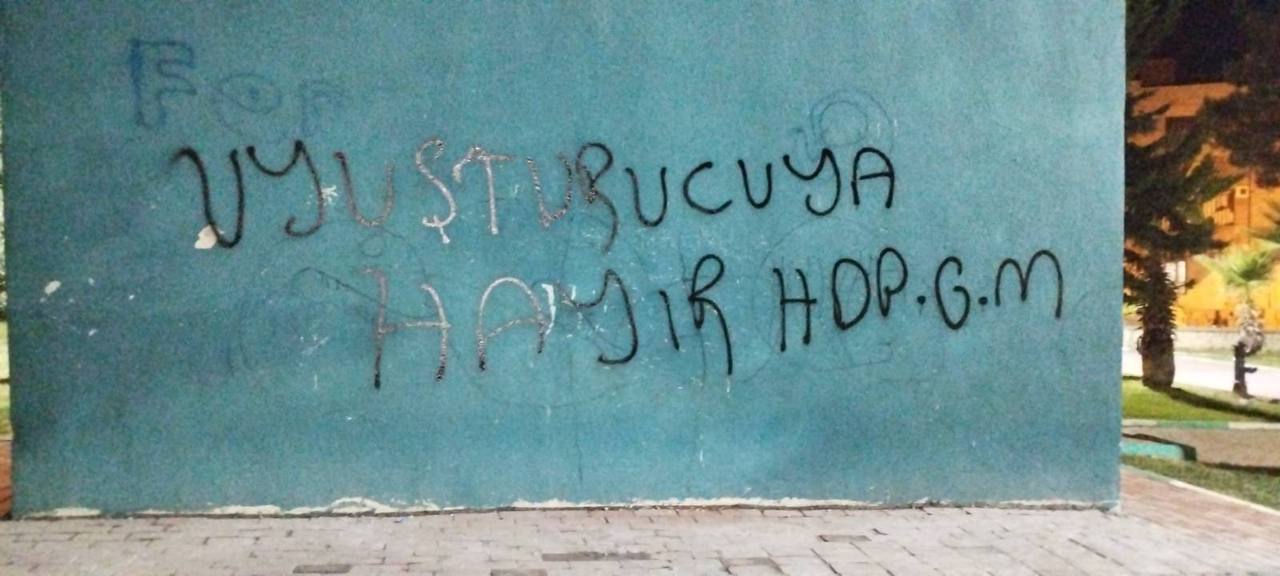 For
UYUŞTURUCUYA
HAYIR HDP.G.M